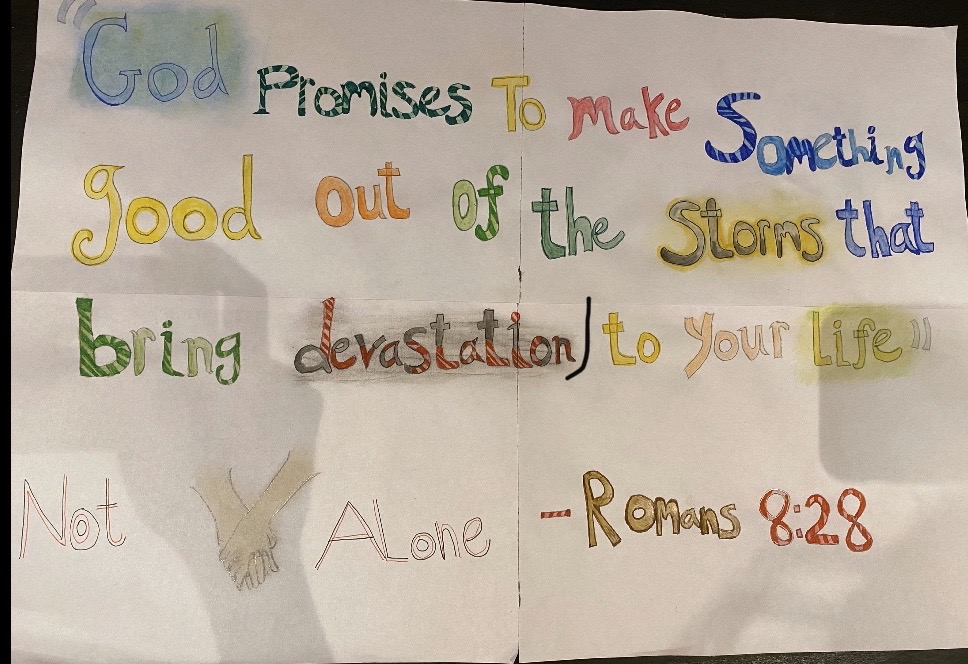 "God Promises To make Something
good out of the Storms that
bring devastation) to your life"
Not ALone - Romans 8:28